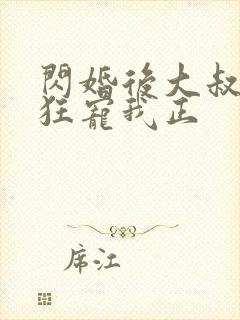 閃婚後大叔
狂寵我正
席江